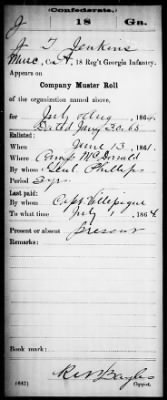 (Confederate.)
J 18 Ga.
J T Jenkins
Musc, Co. A, 18 Reg't Georgia Infantry.
Appears on
Company Muster Roll
of the organization named above,
for July & Aug, 1864.
Dated Jany 30. 65
Enlisted:
When June 13, 1861.
Where Camp McDonald
By whom Genl Phillips
Period 3 yrs.
Last paid:
By whom Capt Villipigue
To what time July 1, 1864
Present or absent present
Remarks:
Book mark:
(642) Copyist.